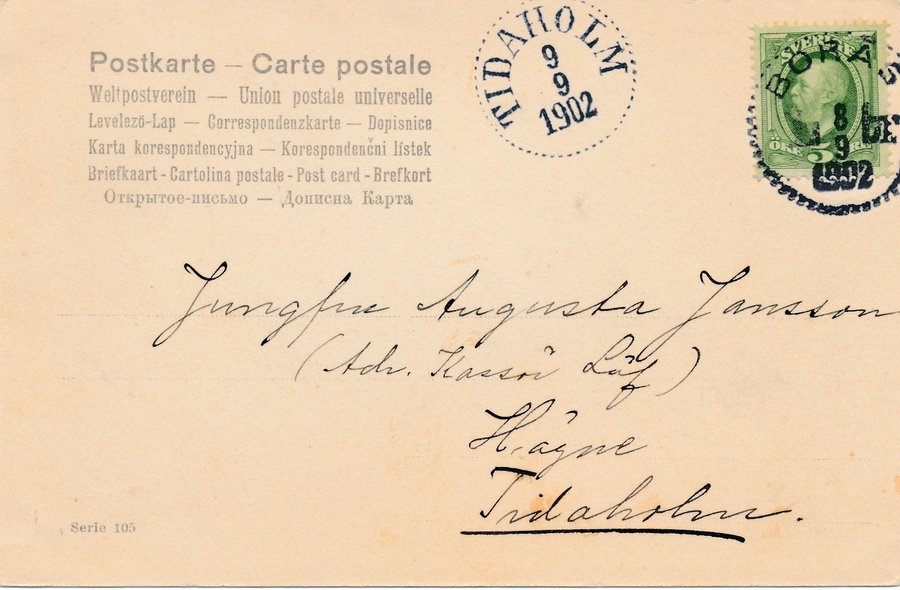 Postkarte – Carte postale
Weltpostverein — Union postale universelle
Levelező-Lap — Correspondenzkarte — Dopisnice
Karta korespondencyjna — Korespondenční lístek
Briefkaart - Cartolina postale - Post card - Brefkort
Открытое-письмо — Дописна Карта
TIDAHOLM
9
9
1902
SVERIGE
ÖRE 5
BORÅS
8
9
1902
Jungfru Augusta Jansson
(Adr. Kassör Löf)
Hägne
Tidaholm.
Serie 105